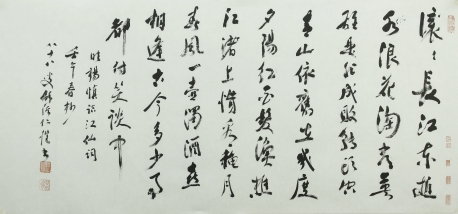 滚〻長江東逝
水浪花淘盡英
雄是非成敗轉頭空
青山依舊在幾度
夕陽紅白髮漁樵
江渚上慣看秋月
春風一壺濁酒喜
相逢古今多少事
都付笑談中
明楊慎臨江仙詞
壬午春
八十八叟